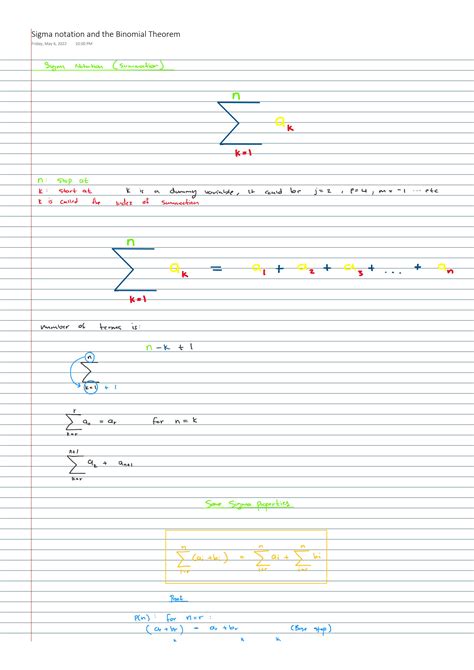 Sigma notation and the Binomial Theorem
Friday, May 6, 2022 10:00 PM
Sigma Notation (Summation)
n
∑ a_k
k=1
n: stop at
k: start at k is a dummy variable, it could be j=2, p=4, m=-1 ... etc
k is called the index of summation
n
∑ a_k = a_1 + a_2 + a_3 + ... + a_n
k=1
number of terms is:
n - k + 1
n
∑
k=1 + 1
r
∑ = a_r for n=k
k=r
n+1
∑ a_k + a_{n+1}
k=r
Some Sigma Properties
n n n
∑ (a_i + b_i) = ∑ a_i + ∑ b_i
i=r i=r i=r
Proof
P(n): for n=r:
(a_r + b_r) = a_r + b_r (Base step)